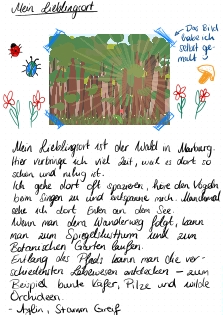 Mein Lieblingsort
Das Bild
habe ich
selbst ge-
malt
Mein Lieblingsort ist der Wald in Marburg.
Hier verbringe ich viel Zeit, weil es dort so
schön und ruhig ist.
Ich gehe dort oft spazieren, höre den Vögeln
beim Singen zu und entspanne mich. Manchmal
sehe ich dort Enten an dem See.
Wenn man dem Wanderweg folgt, kann
man zum Spiegelslustturm und zum
Botanischen Garten laufen.
Entlang des Pfads kann man die ver-
schiedensten Lebewesen entdecken – zum
Beispiel bunte Käfer, Pilze und wilde
Orchideen.